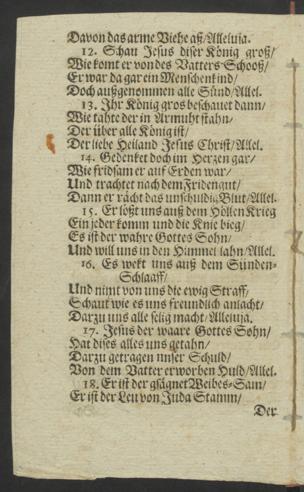 Davon das arme Viehe aß/Alleluja.
12. Schau Jesus diser König groß/
Wie komt er von des Vatters Schooß/
Er war da gar ein Menschenkind/
Doch außgenommen alle Sünd/Allel.
13. Ihr König gros beschauet dann/
Wie taht der in Armuht stahn/
Der über alle König ist/
Der liebe Heiland Jesus Christ/Allel.
14. Gedenket doch im Herzen gar/
Wie fridsam er auf Erden war/
Und trachtet nach dem Fridengut/
Dann er rächt das unschuldig Blut/Allel.
15. Er lößt uns auß dem Höllen Krieg
Ein jeder komm und die Knie bieg/
Es ist der wahre Gottes Sohn/
Und will uns in den Himmel lahn/Allel.
16. Es wekt uns auß dem Sünden-
Schlaaff/
Und nimt von uns die ewig Straff/
Schaut wie es uns freundlich anlacht/
Darzu uns alle selig macht/Alleluja.
17. Jesus der waare Gottes Sohn/
Hat dises alles uns getahn/
Darzu getragen unser Schuld/
Von dem Vatter erworben Huld/Allel.
18. Er ist der gsägnet Weibes-Sam/
Er ist der Leu von Juda Stamm/
Der